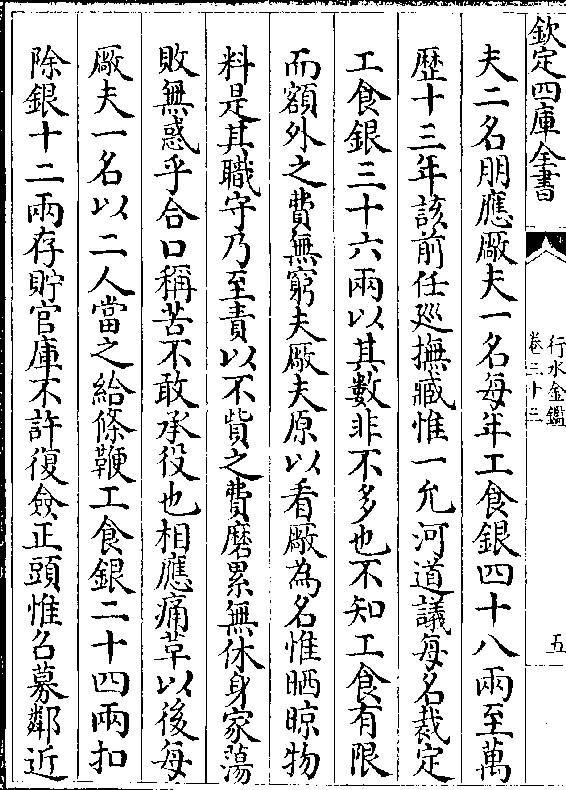 欽定四庫全書
行水金鑑
卷三十三
五
夫二名朋應廠夫一名每年工食銀四十八兩至萬
歴十三年該前任廵撫臧惟一允河道議每名裁定
工食銀三十六兩以其數非不多也不知工食有限
而額外之費無窮夫廠夫原以看廠為名惟晒晾物
料是其職守乃至責以不貲之費磨累無休身家蕩
敗無惑乎合口稱苦不敢承役也相應痛草以後每
廠夫一名以二人當之給條鞭工食銀二十四兩扣
除銀十二兩存貯官庫不許復僉正頭惟名募鄰近